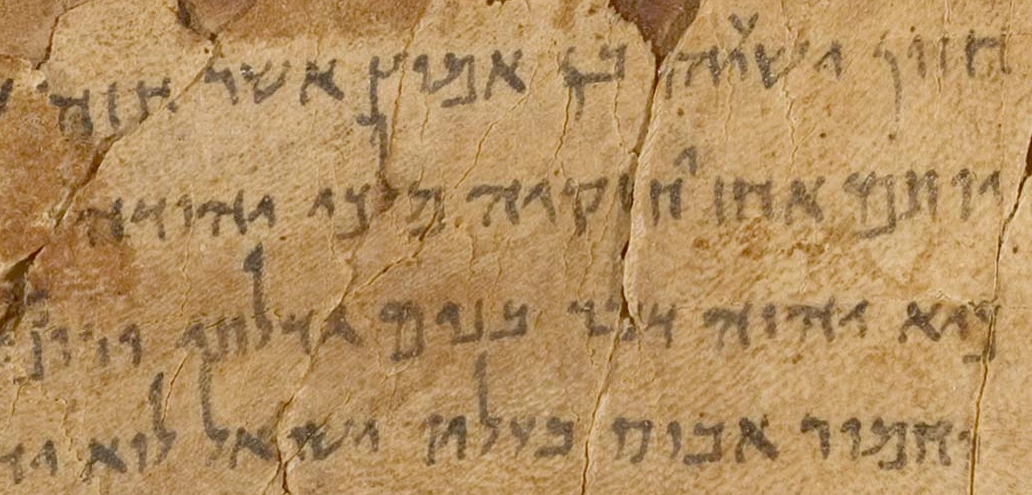 חזון ישעיהו בן אמוץ אשר חזה
יותם אחז יחזקיה מלכי יהודה
כיא יהוה דבר בנים גדלתי
וחמור אבוס בעליו ישראל לוא